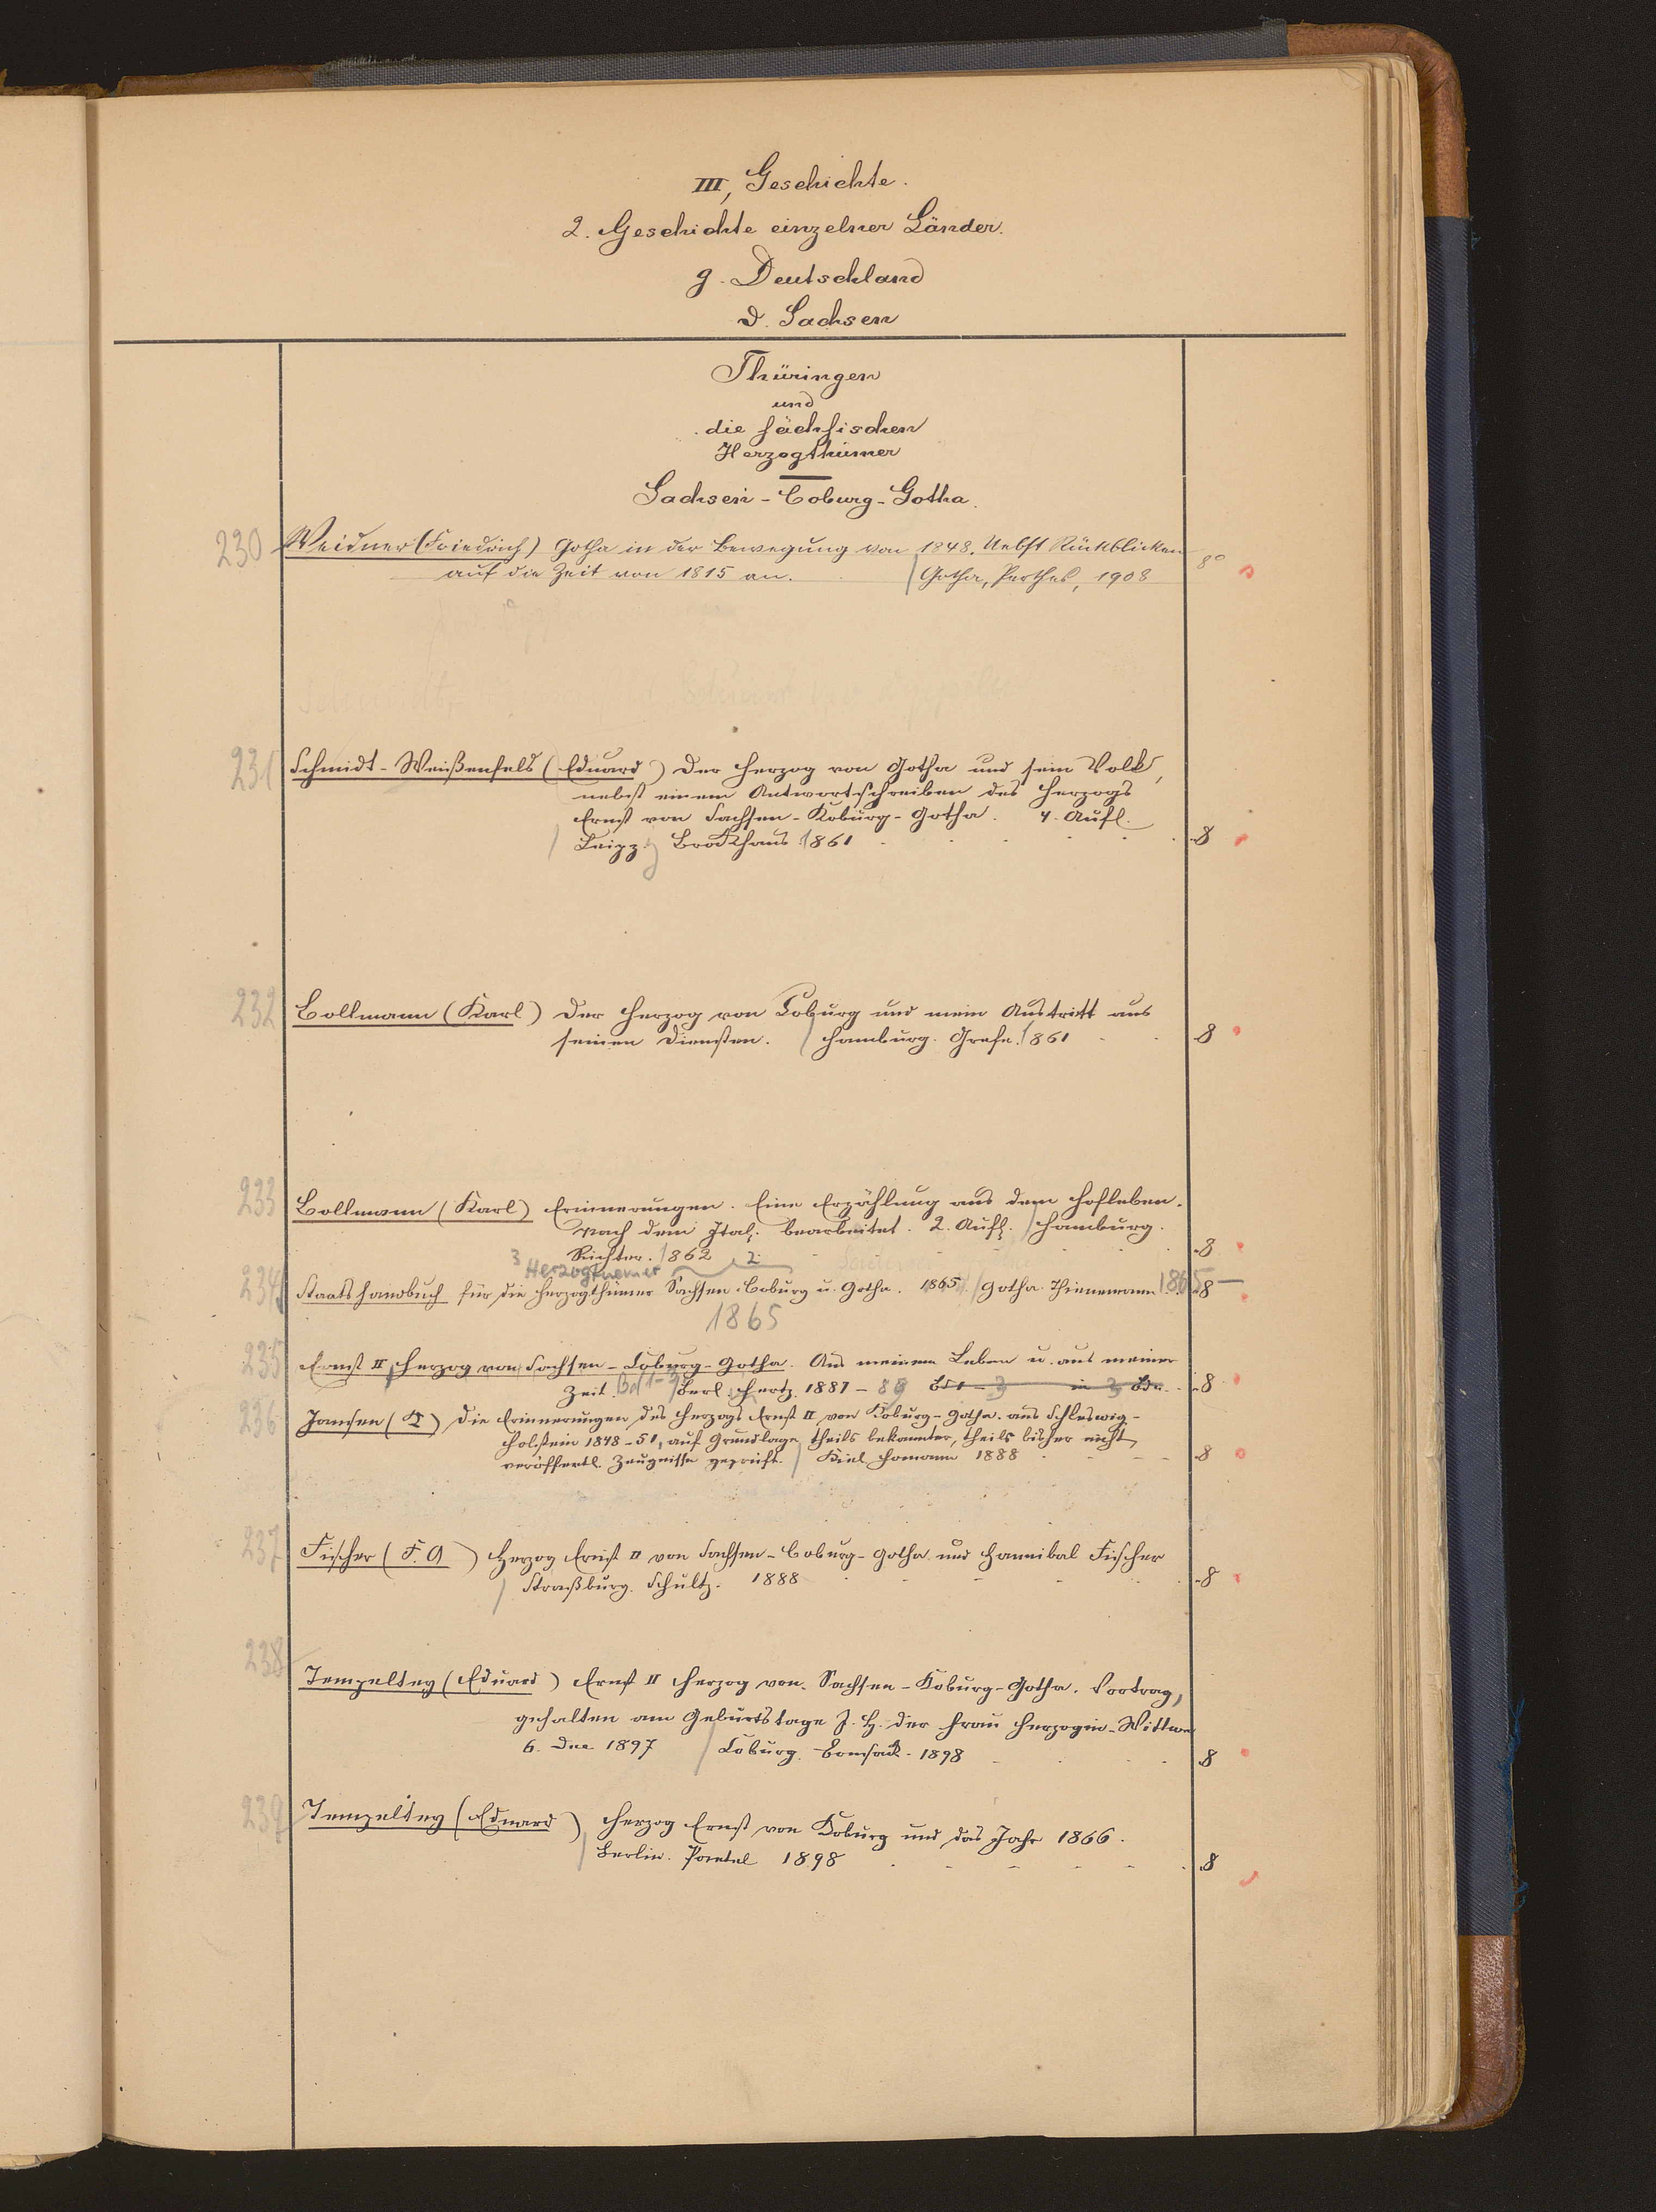 III, Geschichte.
2. Geschichte einzelner Länder.
g. Deutschland
d. Sachsen
Thüringen
und
die sächsischen
Herzogthümer
Sachsen-Coburg-Gotha.
230 Weidner (Friedrich) Gotha in der Bewegung von 1848. Nebst Rückblicken 8°
auf die Zeit von 1815 an. Gotha, Perthes, 1908
231 Schmidt-Weißenfels (Eduard) Der Herzog von Gotha und sein Volk,
nebst einem Antwortschreiben des Herzogs
Ernst von Sachsen-Koburg-Gotha. 4. Aufl.
Leipz. Brockhaus 1861 8
232 Bollmann (Karl) Der Herzog von Coburg und mein Austritt aus
seinen Diensten. Hamburg. Grefe. 1861 8
233 Bollmann (Karl) Erinnerungen. Eine Erzählung aus dem Hofleben.
Nach dem Ital. bearbeitet. 2. Aufl. Hamburg.
Richter. 1862 8
3 Herzogtuemer 2
234 Staatshandbuch für die Herzogthümer Sachsen-Coburg u. Gotha. 1865. Gotha. Thienemann 1865 8
1865
235 Ernst II, Herzog von Sachsen-Coburg-Gotha. Aus meinem Leben u. aus meiner
Zeit. Bd 1-3 Berl. Hertz. 1887-89 Bd 1-3 in 3 Bdn. 8
236 Jansen (K) Die Erinnerungen des Herzogs Ernst II von Koburg-Gotha aus Schleswig-
Holstein 1848-51, auf Grundlage theils bekannter, theils bisher nicht
veröffentl. Zeugnisse geprüft. Kiel Homann 1888 8
237 Fischer (F. A) Herzog Ernst II von Sachsen-Coburg-Gotha und Hannibal Fischer
Straßburg. Schultz. 1888 8
238 Tempeltey (Eduard) Ernst II Herzog von Sachsen-Koburg-Gotha. Vortrag,
gehalten am Geburtstage I. H. der Frau Herzogin-Wittwe
6. Dec 1897 Coburg. 1898 8
239 Tempeltey (Eduard) Herzog Ernst von Koburg und das Jahr 1866.
Berlin. Paetel 1898 8